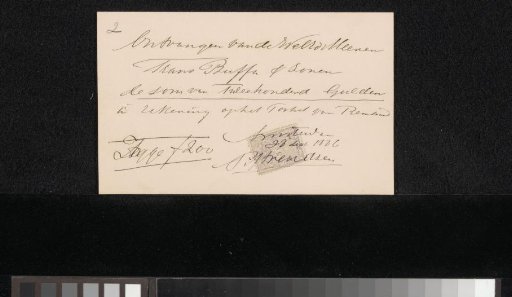 2
Ontvangen van de WelEd. Heeren
Frans Buffa & Zonen
de som van tweehonderd Gulden
in rekening op het Portret van
Amsterdam
Zegge f 200